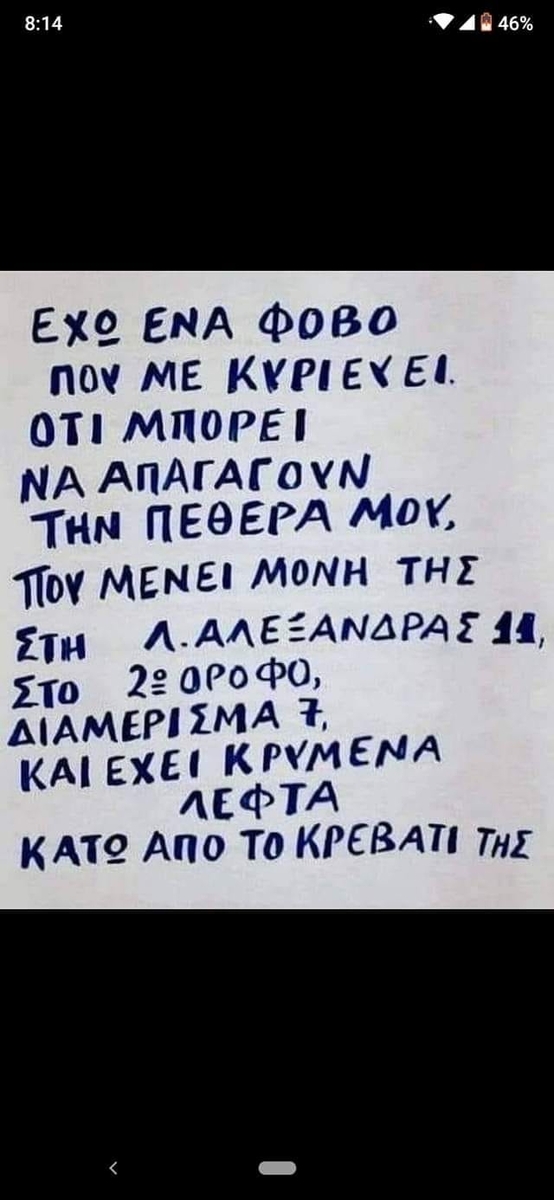 8:14
46%
ΕΧΩ ΕΝΑ ΦΟΒΟ
ΠΟΥ ΜΕ ΚΥΡΙΕΥΕΙ.
ΟΤΙ ΜΠΟΡΕΙ
ΝΑ ΑΠΑΓΑΓΟΥΝ
ΤΗΝ ΠΕΘΕΡΑ ΜΟΥ,
ΠΟΥ ΜΕΝΕΙ ΜΟΝΗ ΤΗΣ
ΣΤΗ Λ. ΑΛΕΞΑΝΔΡΑΣ 11,
ΣΤΟ 2º ΟΡΟΦΟ,
ΔΙΑΜΕΡΙΣΜΑ 7,
ΚΑΙ ΕΧΕΙ ΚΡΥΜΕΝΑ
ΛΕΦΤΑ
ΚΑΤΩ ΑΠΟ ΤΟ ΚΡΕΒΑΤΙ ΤΗΣ